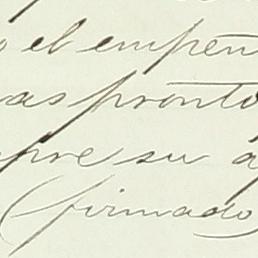 el empeñ
as pronto
pre su a
(firmado